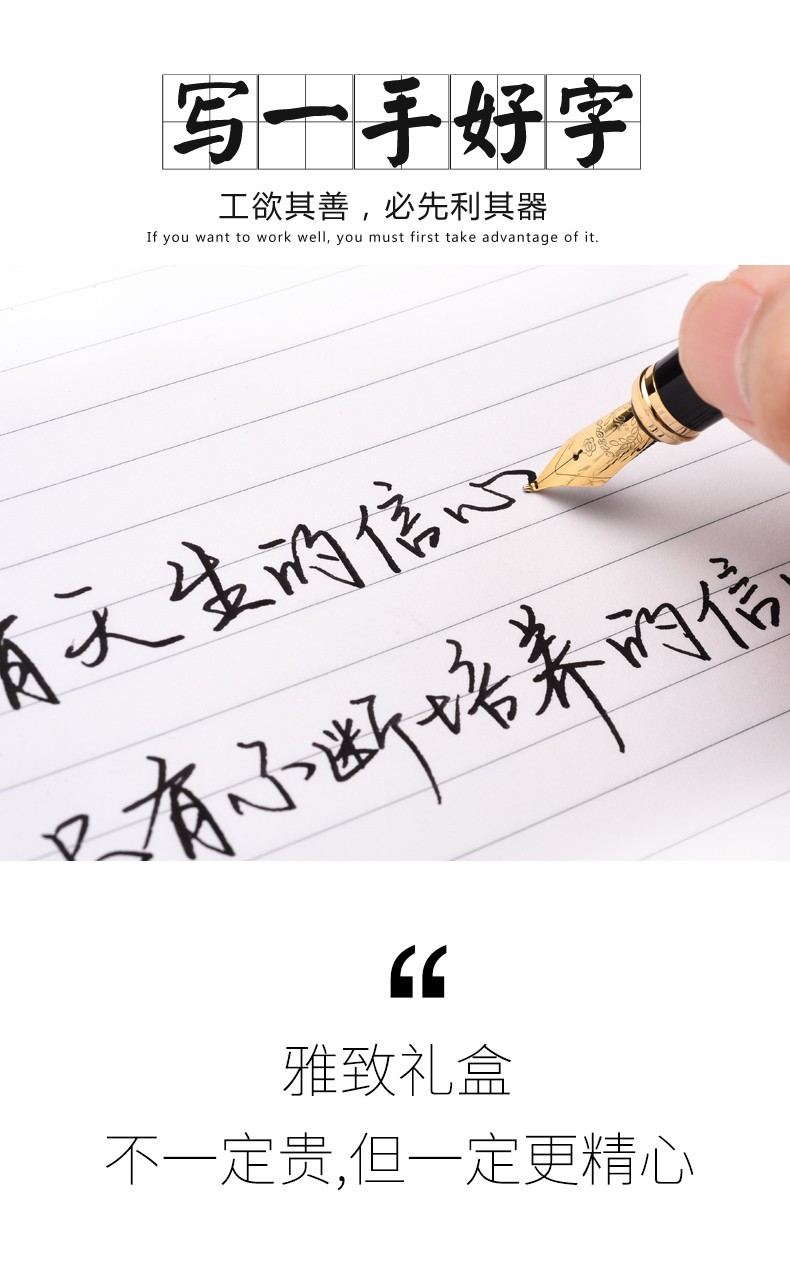 写一手好字
工欲其善，必先利其器
If you want to work well, you must first take advantage of it.
有天生的信心
只有不断培养的信心
“
雅致礼盒
不一定贵,但一定更精心